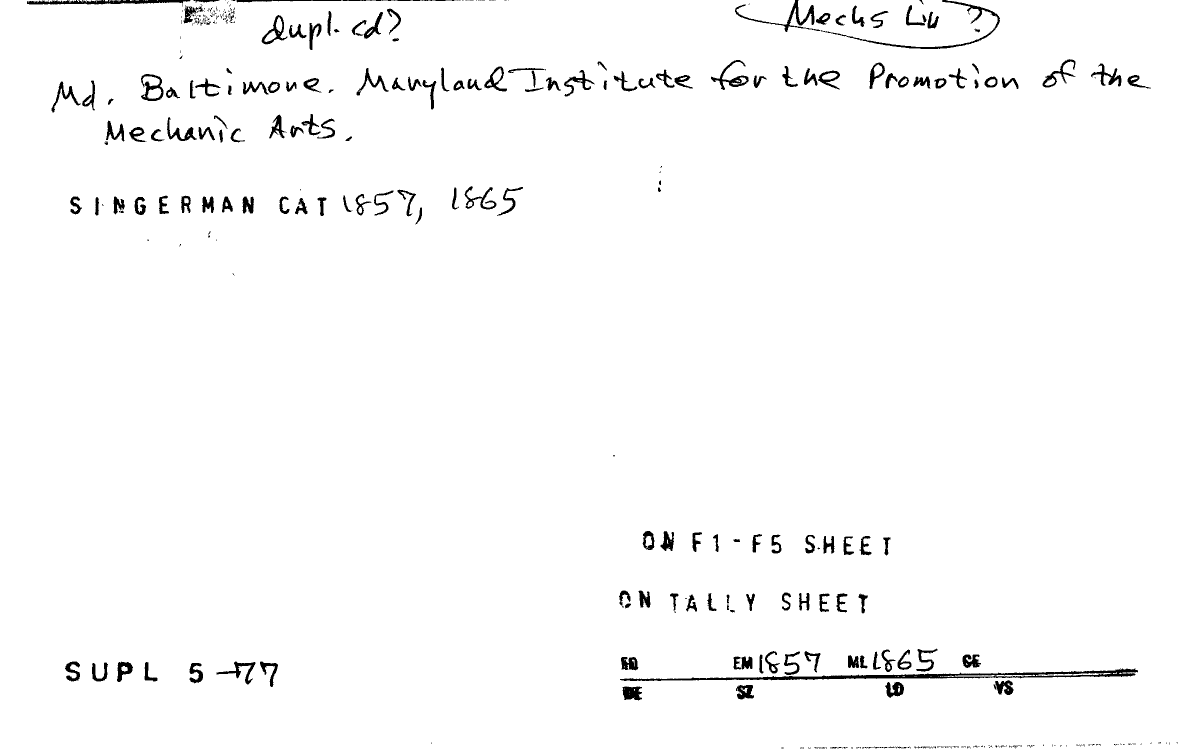 dupl. cd? Mechs Lib ?
Md. Baltimore. Maryland Institute for the Promotion of the
Mechanic Arts.
SINGERMAN CAT 1857, 1865
ON F1-F5 SHEET
ON TALLY SHEET
SUPL 5-77
EQ EM 1857 ML 1865 CE
DE SZ LD VS